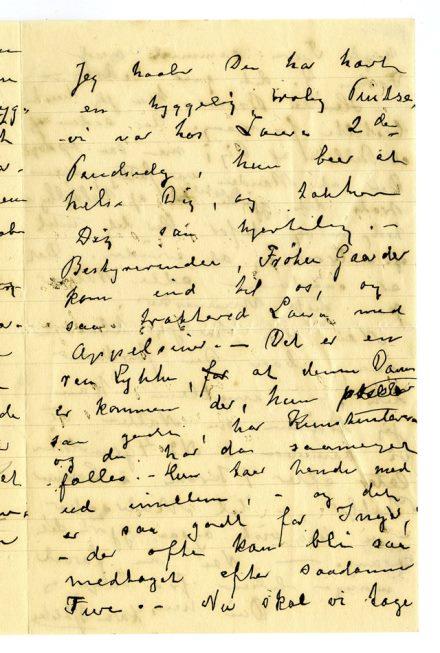 Jeg haaber Du har havt
en hyggelig, rolig Pintse,
- vi var hos Laura 2den
Pindsedg, hun beer at
hilse Dig, og takker
Dig saa hjerteligt. -
Bestyrerinden, Frøken Gaarder
kom ind til os, og
saa trakterede Laura med
Appelsiner. - Det er en
ren Lykke, for at denne Dame
er kommen der, hun
saa godt, har Kunstinteresse
og de har da saameget
fælles. - Hun taer hende med
ud imellem, - og det
er saa godt for Inger,
- der ofte kan bli saa
medtaget efter saadanne
Ture. - Nu skal vi tage